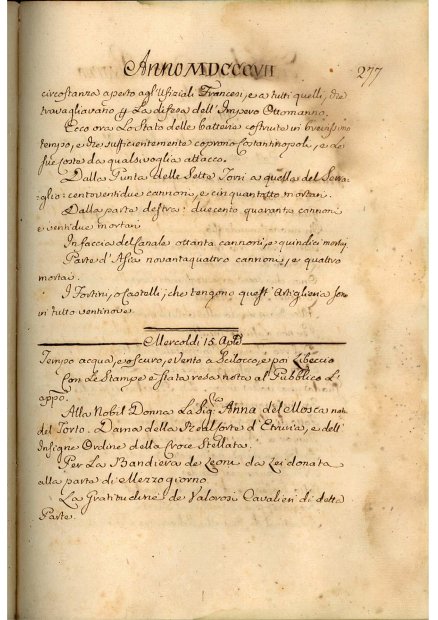 Anno MDCCCVII
277
circostanza aperto agl'Ufiziali Francesi, e a tutti quelli, che
travagliavano p La difesa dell'Impero Ottomanno.
Ecco ora Lo Stato delle batterie costruite in brevissimo
tempo, e che sufficientemente coprono Costantinopoli, e
sue coste da qualsivoglia attacco.
Dalla Punta delle Sette Torri a quella del Serra-
glio: centoventidue cannoni, e cinquantotto mortari.
Dalla parte destra: duecento quaranta cannoni
e ventidue mortari
In faccia del Canale ottanta cannoni, e quindici
Parte d'Asia novantaquattro cannoni, e quattro
mortai.
I Fortini, o Castelli, che tengono quest'Artiglieria sono
in tutto ventinove.
Mercoldì 15. Aple
Tempo acqua, e oscuro, e Vento a Scilocco, e poi Libeccio
Con Le Stampe è stata resa nota al Pubblico L'
appo.
Alla Nobil Donna La Sigra Anna del Mosca
del Torto. Dama della Corte d'Etruria, e dell'
Insigne Ordine della Croce Stellata.
Per La Bandiera de Leoni da Lei donata
alla parte di Mezzogiorno
La Gratitudine de Valorosi Cavalieri di detta
Parte.